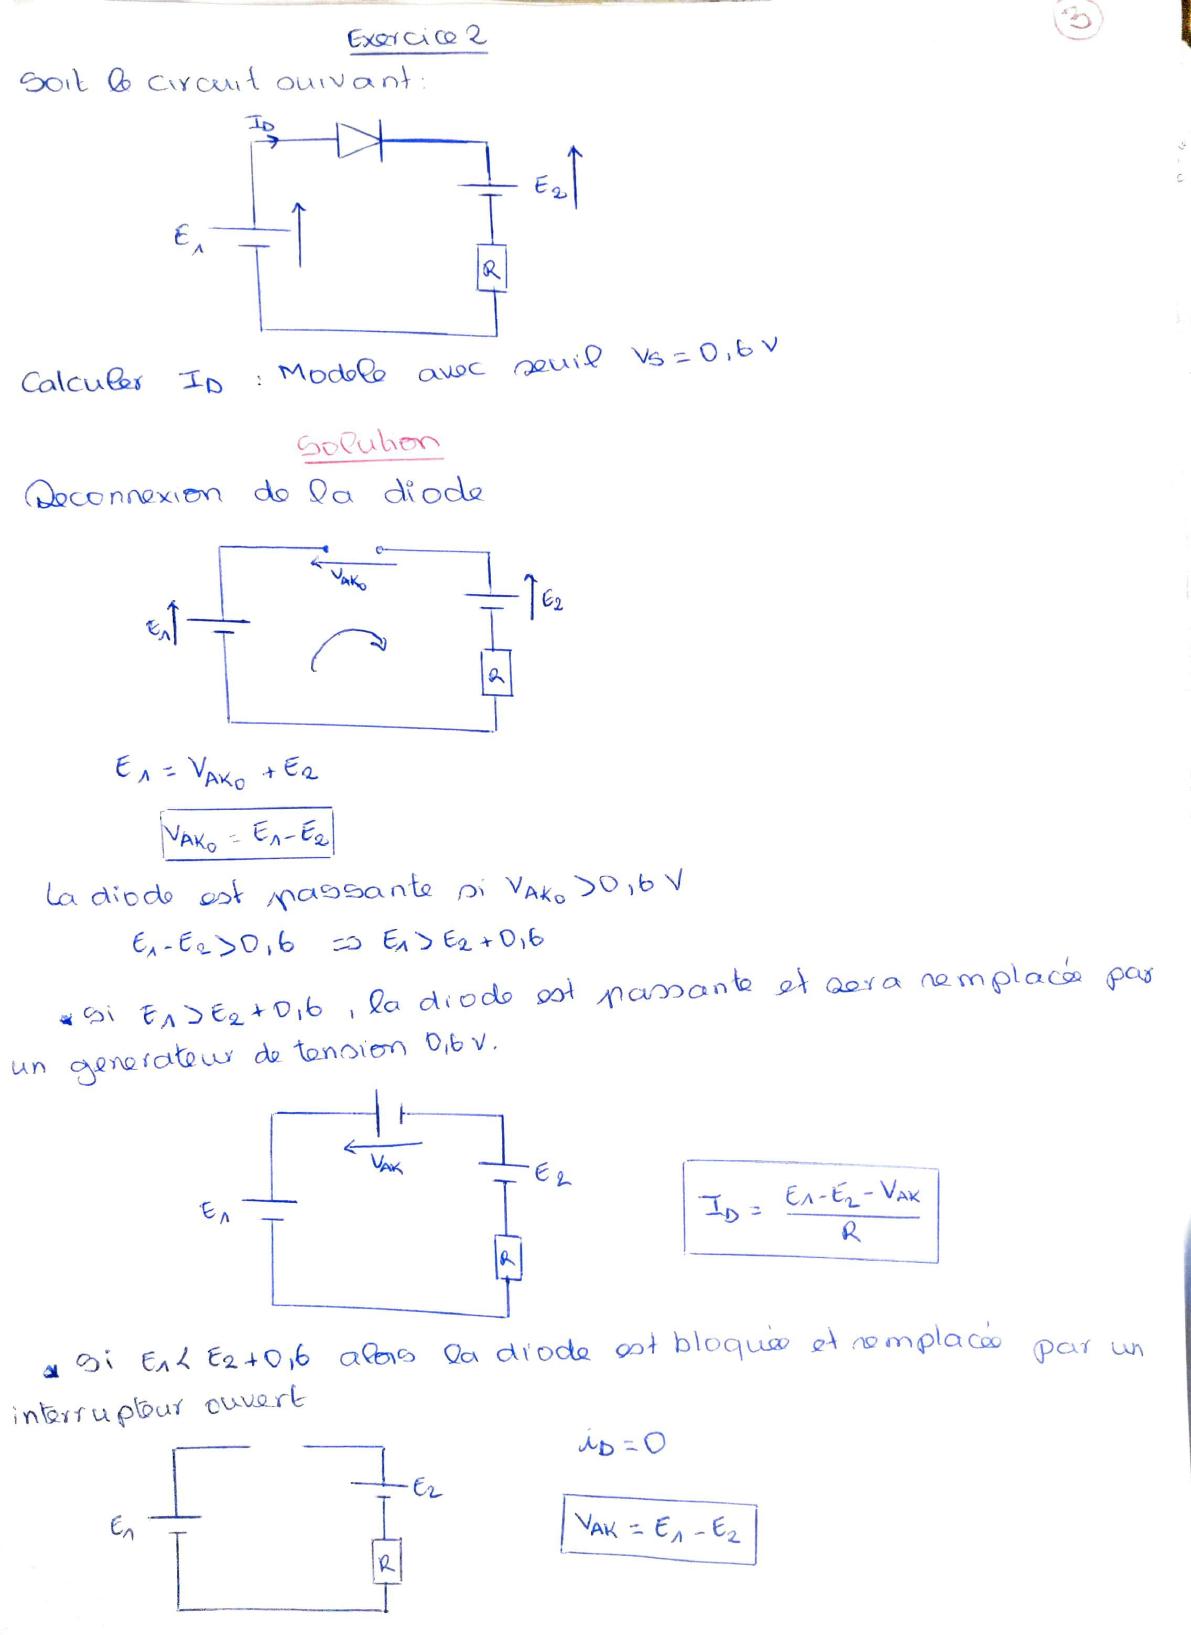 3
Exercice 2
Soit le circuit suivant :
I_D
E_1
E_2
R
Calculer I_D : Modele avec seuil Vs = 0,6 V
Solution
Deconnexion de la diode
V_AK0
E_1
E_2
R
E_1 = V_AK0 + E_2
V_AK0 = E_1 - E_2
La diode est passante si V_AK0 > 0,6 V
E_1 - E_2 > 0,6 ⇒ E_1 > E_2 + 0,6
* Si E_1 > E_2 + 0,6 , la diode est passante et sera remplacée par
un generateur de tension 0,6 V.
V_AK
E_2
E_1
R
I_D = (E_1 - E_2 - V_AK) / R
* Si E_1 < E_2 + 0,6 alors la diode est bloquée et remplacée par un
interrupteur ouvert
E_2
E_1
R
i_D = 0
V_AK = E_1 - E_2